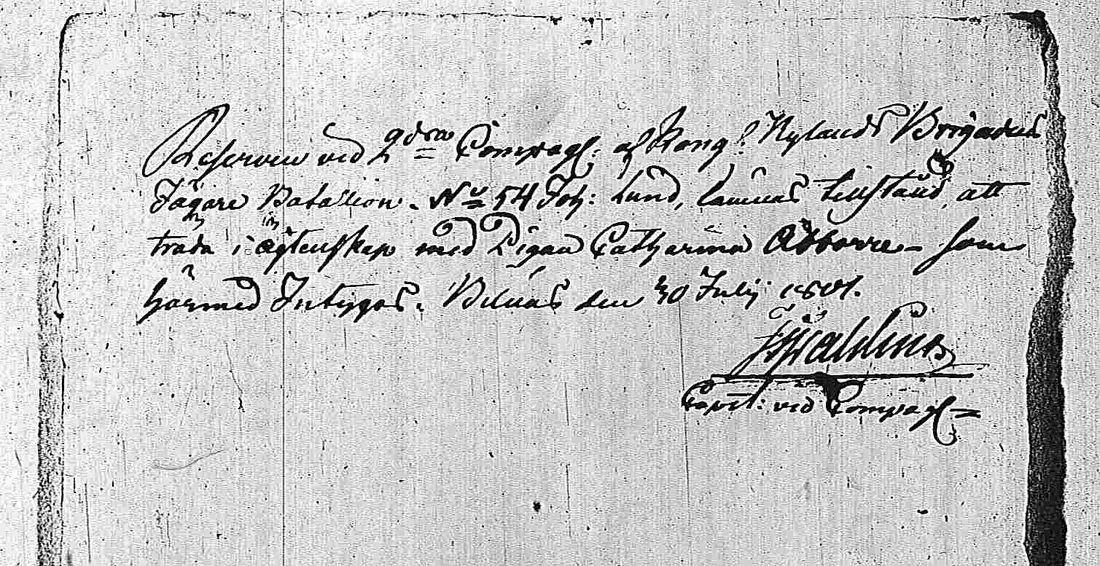 Reserven vid 2dra Compagt: af Kongl. Nylands Brigades
Jägare Bataillon. No 54 Joh: Lund, lämnas tillstånd, att
träda i ägtenskap med Pigan Catharina Abborre som
härmed Intygas. Billnäs den 30 Julij 1801.
Capit: vid Compagt